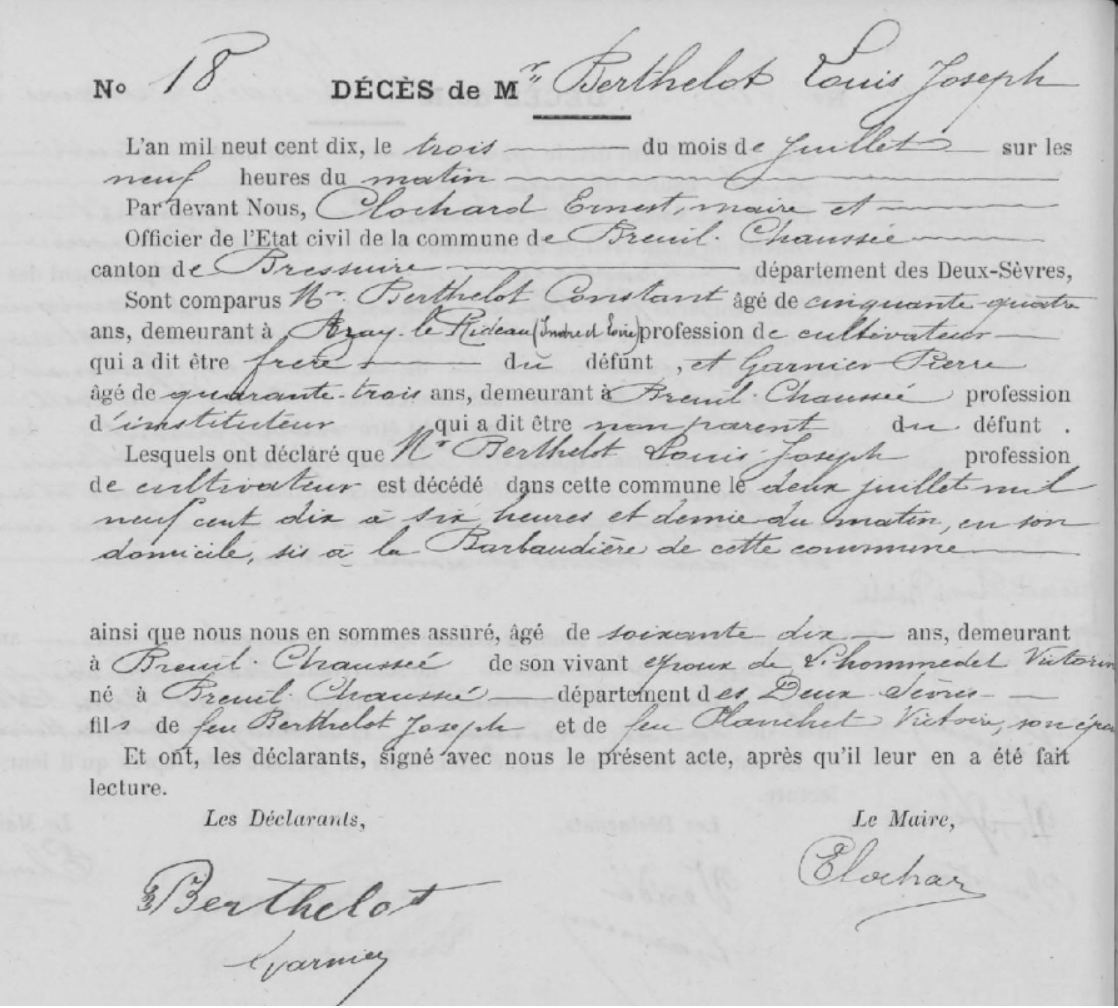 No 18 DÉCÈS de Mr Berthelot Louis Joseph
L'an mil neuf cent dix, le trois du mois de Juillet sur les
neuf heures du matin
Par devant Nous, Clochard Ernest, maire et
Officier de l'Etat civil de la commune de Breuil-Chaussée
canton de Bressuire département des Deux-Sèvres,
Sont comparus Mr Berthelot Constant âgé de cinquante-quatre
ans, demeurant à Azay-le-Rideau (Indre et Loire) profession de cultivateur
qui a dit être frère du défunt, et Garnier Pierre
âgé de quarante-trois ans, demeurant à Breuil-Chaussée profession
d'instituteur qui a dit être non parent du défunt.
Lesquels ont déclaré que Mr Berthelot Louis Joseph profession
de cultivateur est décédé dans cette commune le deux juillet mil
neuf cent dix à six heures et demie du matin, en son
domicile, sis à la Barbaudière de cette commune
ainsi que nous nous en sommes assuré, âgé de soixante dix ans, demeurant
à Breuil-Chaussée de son vivant époux de L'hommedet Victorin
né à Breuil-Chaussée département des Deux-Sèvres
fils de feu Berthelot Joseph et de feu Planchet Victoire, son
Et ont, les déclarants, signé avec nous le présent acte, après qu'il leur en a été fait
lecture.
Les Déclarants, Le Maire,
Berthelot EClochar
Garnier